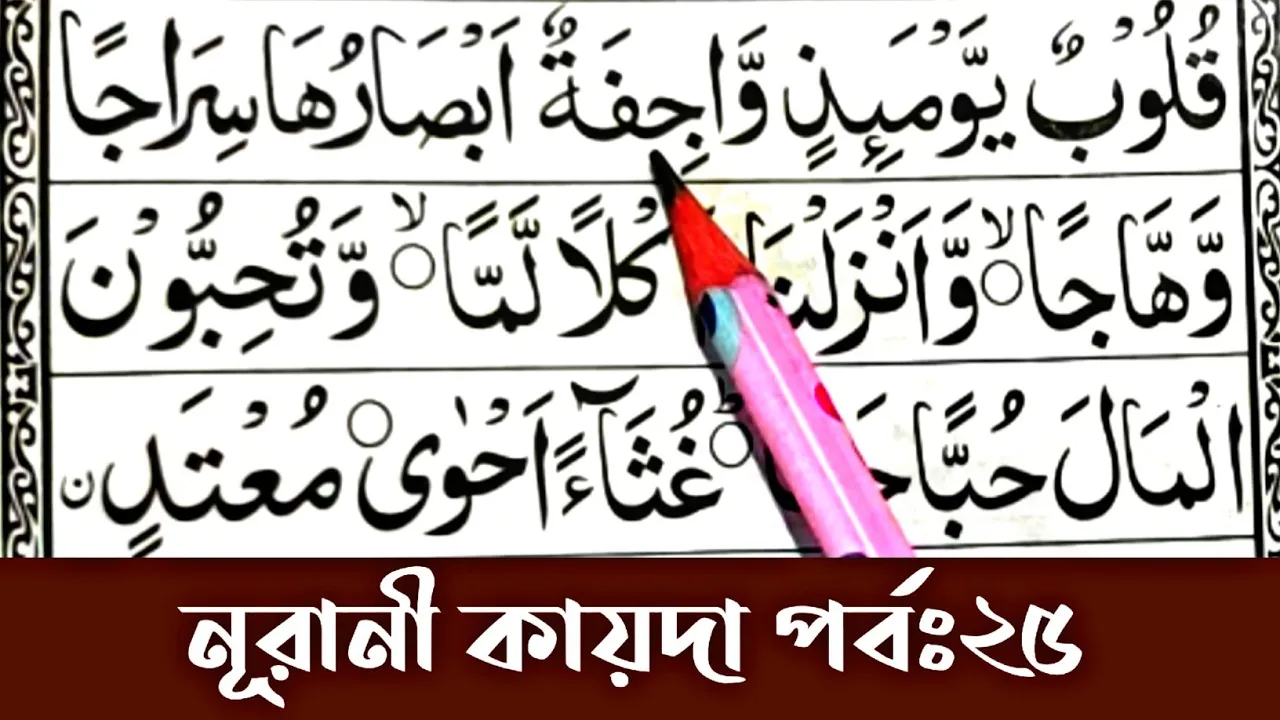 قُلُوْبٌ يَّوْمَىِٕذٍ وَّاجِفَةٌ اَبْصَارُهَا سِرَاجًا
وَّهَّاجًا ۙ وَّاَنْزَلْنَا كْلًا لَّمًّا ۙ وَّتُحِبُّوْنَ
الْمَالَ حُبًّا غُثَآءً اَحْوٰى ۝ مُعْتَدٍ ن
নূরানী কায়দা পর্বঃ২৫